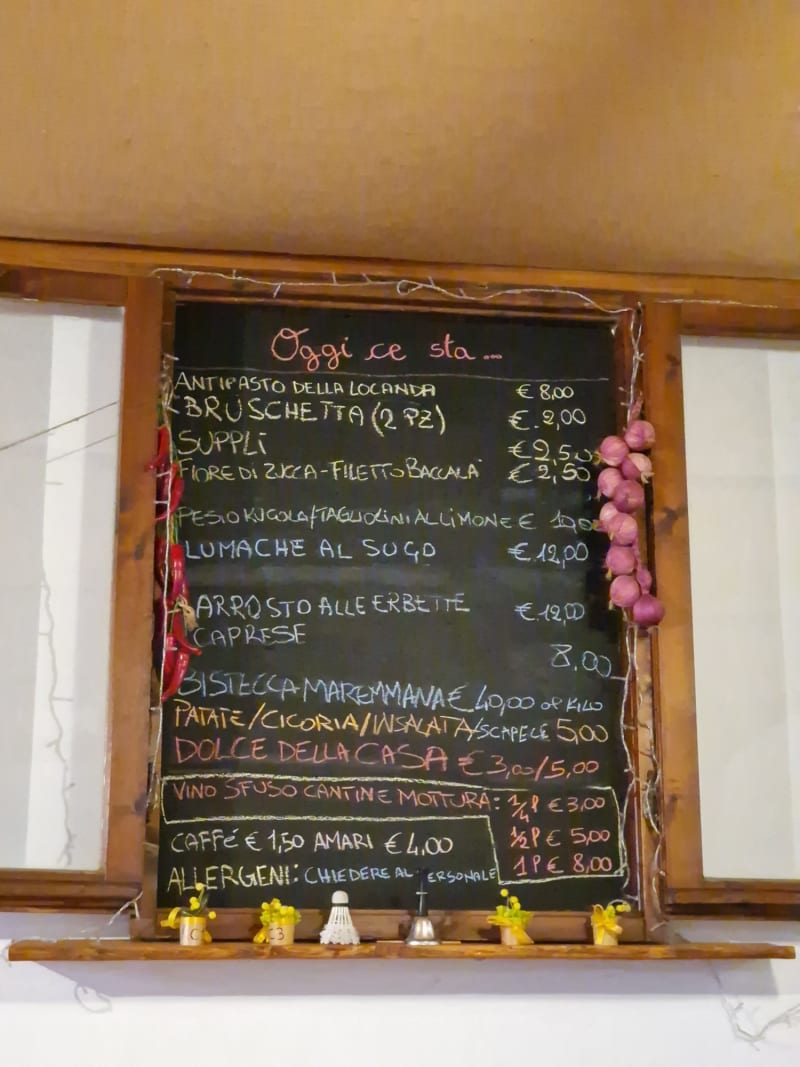 Oggi ce sta...
ANTIPASTO DELLA LOCANDA € 8,00
BRUSCHETTA (2 PZ) €.2,00
SUPPLÌ €2,50
FIORE DI ZUCCA-FILETTO BACCALÀ €2,50
PESTO RUCOLA/TAGLIOLINI AL LIMONE € 10,00
LUMACHE AL SUGO €.12,00
ARROSTO ALLE ERBETTE €.12,00
CAPRESE 8.00
BISTECCA MAREMMANA € 40,00 al KILO
PATATE/CICORIA/INSALATA/SCAPECE 5,00
DOLCE DELLA CASA € 3,00/5,00
VINO SFUSO CANTINE MOTTURA: 1/4 l € 3,00
1/2 l € 5,00
1 l € 8,00
CAFFÉ € 1,50 AMARI € 4,00
ALLERGENI: CHIEDERE AL PERSONALE
C3